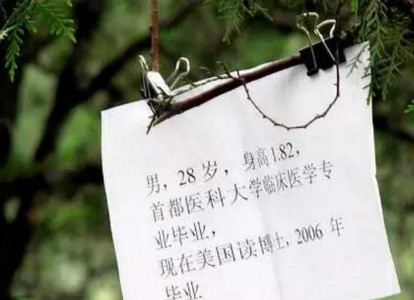 男，28 岁，身高1.82，
首都医科大学临床医学专
业毕业，
现在美国读博士，2006 年
毕业